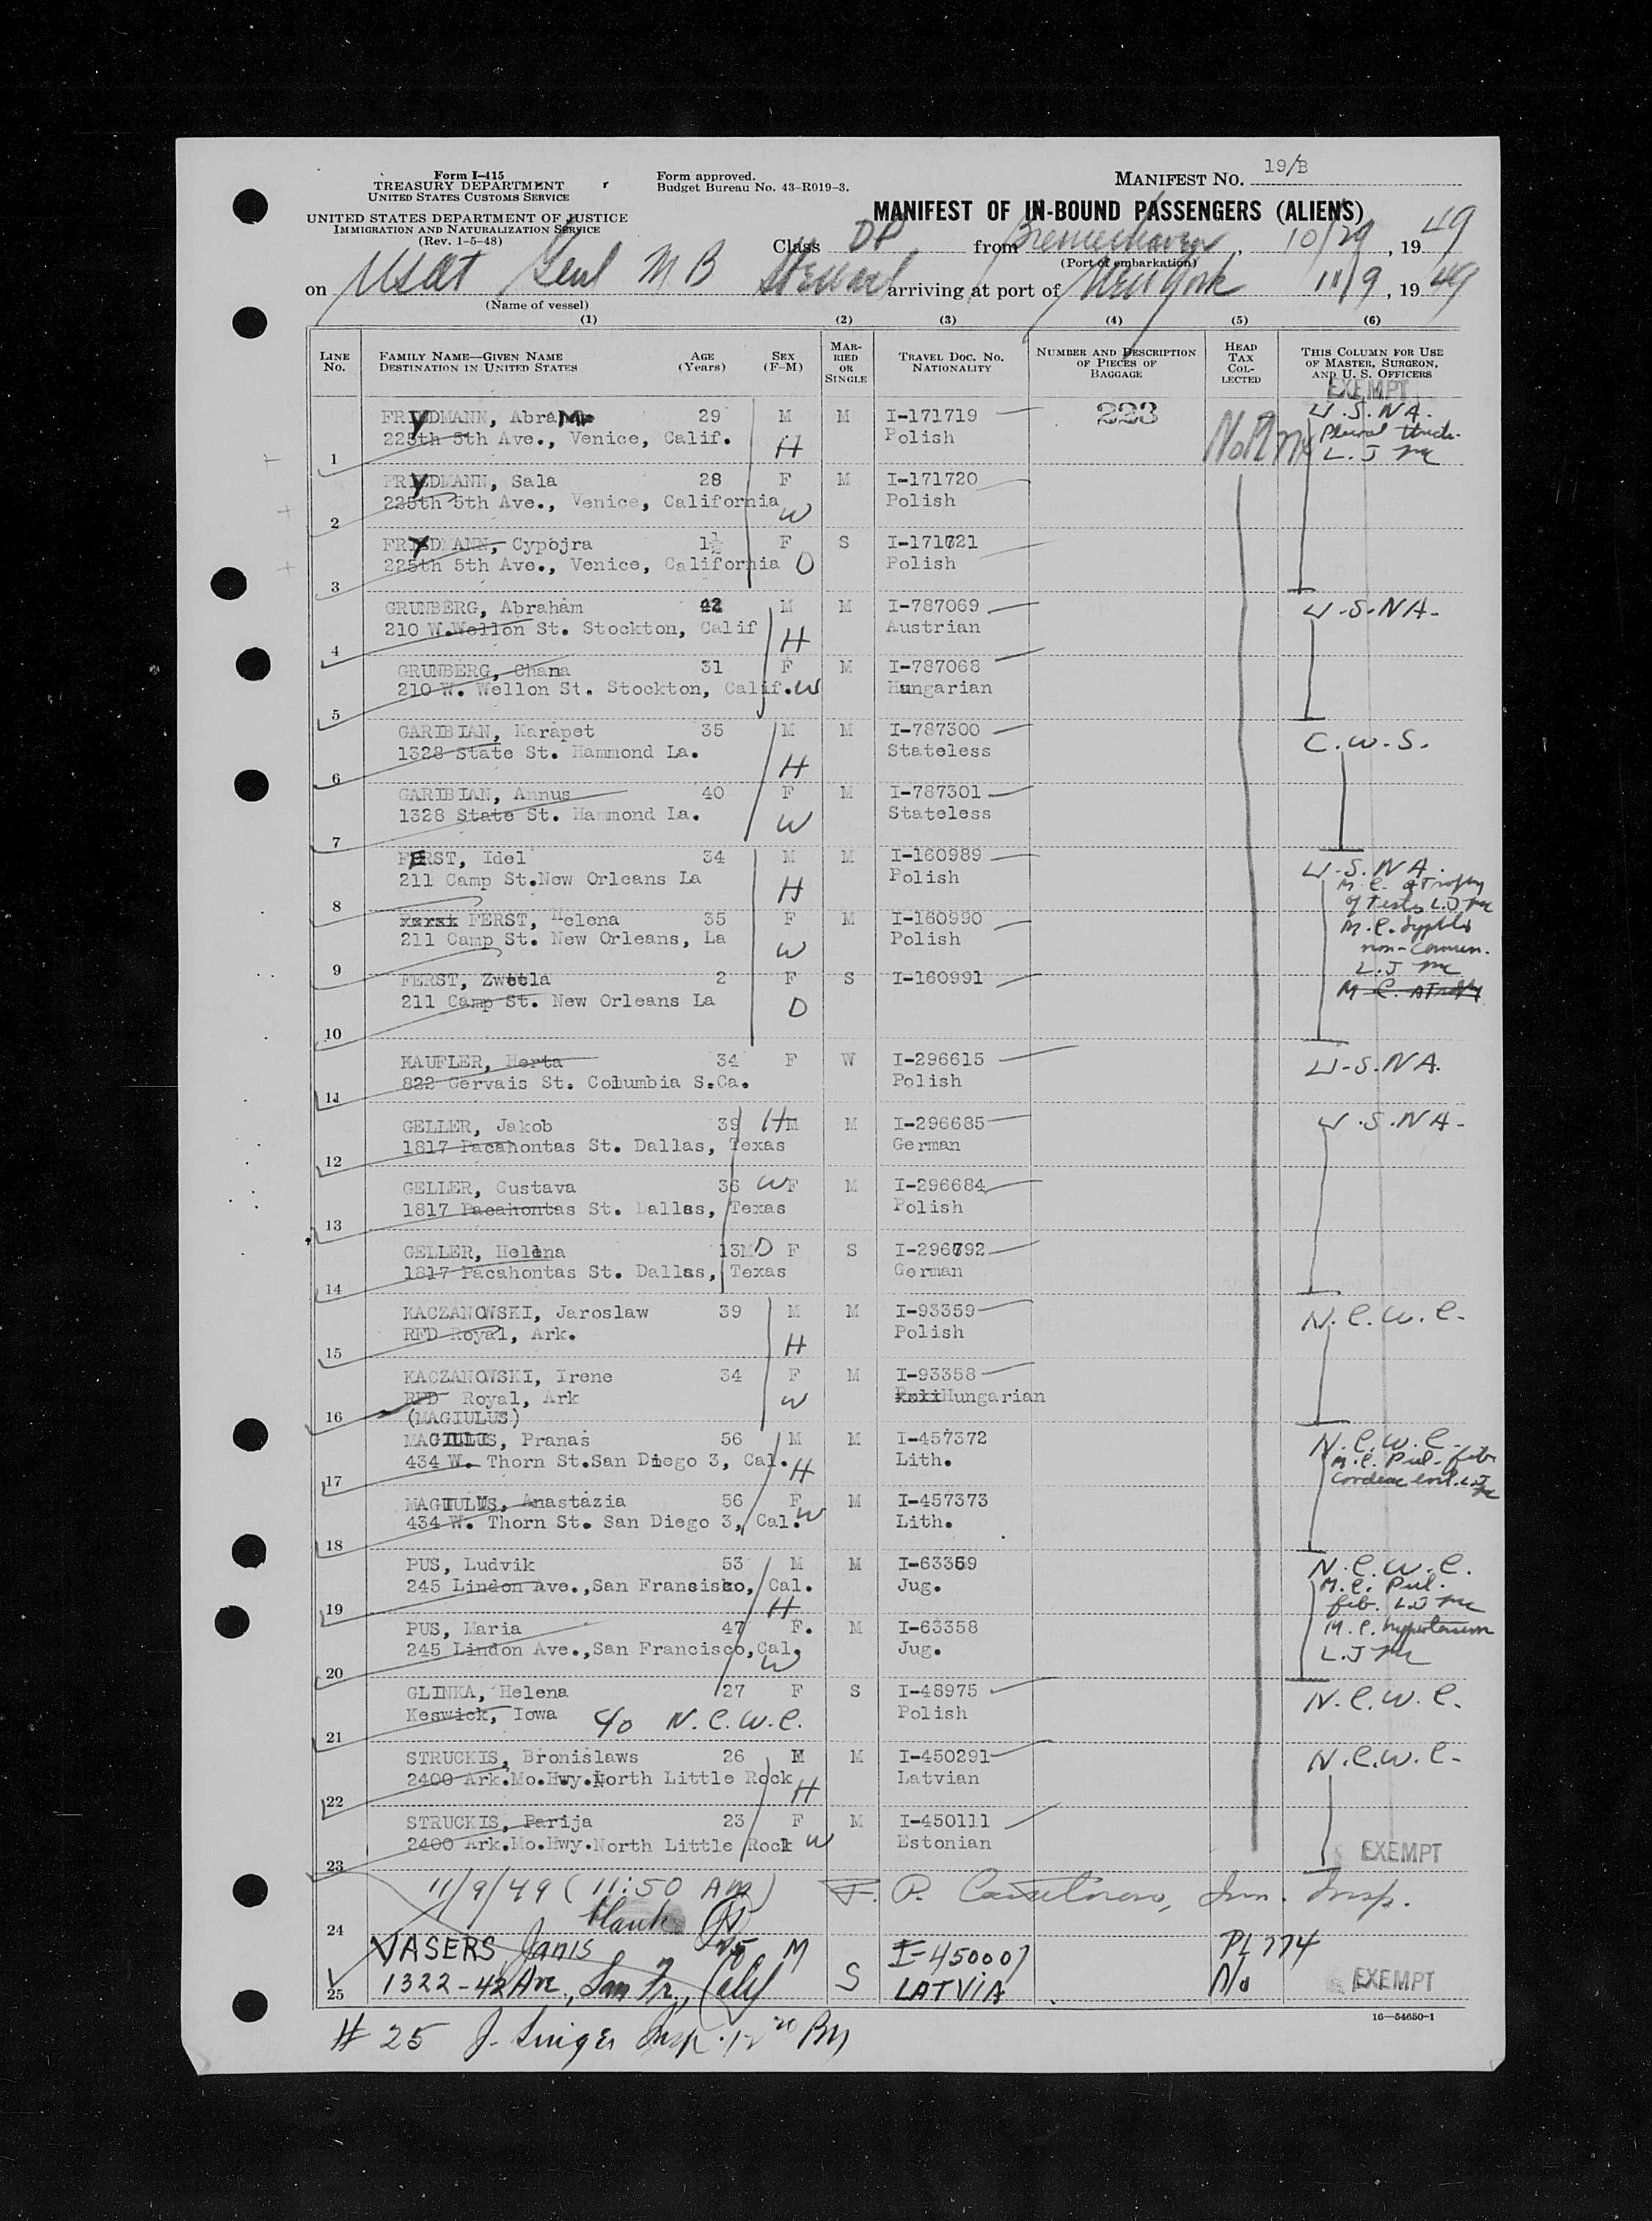 Form I-415
TREASURY DEPARTMENT
UNITED STATES CUSTOMS SERVICE
UNITED STATES DEPARTMENT OF JUSTICE
IMMIGRATION AND NATURALIZATION SERVICE
(Rev. 1-5-48)
Form approved.
Budget Bureau No. 43-R019-3.
MANIFEST NO. 19/B
MANIFEST OF IN-BOUND PASSENGERS (ALIENS)
Class DP from Bremerhaven, 10/29, 1949
(Port of embarkation)
on USAT Genl M B Stewart arriving at port of New York 11/9, 1949
(Name of vessel)
(1) (2) (3) (4) (5) (6)
LINE No. FAMILY NAME—GIVEN NAME DESTINATION IN UNITED STATES AGE (Years) SEX (F-M) MARRIED OR SINGLE TRAVEL DOC. NO. NATIONALITY NUMBER AND DESCRIPTION OF PIECES OF BAGGAGE HEAD TAX COLLECTED THIS COLUMN FOR USE OF MASTER, SURGEON, AND U. S. OFFICERS
EXEMPT
FRYDMANN, Abram 29 M M I-171719 223 U.S.NA.
225th 5th Ave., Venice, Calif. H Polish Pleural thick.
1 L.J
FRYDMANN, Sala 28 F M I-171720
225th 5th Ave., Venice, California W Polish
2
FRYDMANN, Cypojra 1½ F S I-171721
225th 5th Ave., Venice, California D Polish
3
GRUNBERG, Abraham 42 M M I-787069 U.S.NA.
210 W.Wellon St. Stockton, Calif H Austrian
4
GRUNBERG, Chana 31 F M I-787068
210 W. Wellon St. Stockton, Calif. W Hungarian
5
GARIBIAN, Karapet 35 M M I-787300 C.W.S.
1328 State St. Hammond La. H Stateless
6
GARIBIAN, Annus 40 F M I-787301
1328 State St. Hammond La. W Stateless
7
FERST, Idel 34 M M I-160989 U.S.NA.
211 Camp St.New Orleans La H Polish M.C. atrophy
8 of Testes L.J
FERST, Helena 35 F M I-160990 M.C. Syphlis
211 Camp St. New Orleans, La W Polish non-commun.
9 L.J
FERST, Zwetla 2 F S I-160991 M.C. Atrophy
211 Camp St. New Orleans La D
10
KAUFLER, Herta 34 F W I-296615 U.S.NA.
822 Gervais St. Columbia S.Ca. Polish
11
GELLER, Jakob 39 H M M I-296685 U.S.NA.
1817 Pacahontas St. Dallas, Texas German
12
GELLER, Gustava 36 W F M I-296684
1817 Pacahontas St. Dallas, Texas Polish
13
GELLER, Helena 13M D F S I-296792
1817 Pacahontas St. Dallas, Texas German
14
KACZANOWSKI, Jaroslaw 39 M M I-93359 N.C.W.C.
RFD Royal, Ark. H Polish
15
KACZANOWSKI, Irene 34 F M I-93358
RFD Royal, Ark W Hungarian
16 (MAGIULUS)
MAGIULUS, Pranas 56 M M I-457372 N.C.W.C.
434 W. Thorn St.San Diego 3, Cal. H Lith. M.C. Pul. fib
17 L.J
MAGIULUS, Anastazia 56 F M I-457373
434 W. Thorn St. San Diego 3, Cal. W Lith.
18
PUS, Ludvik 53 M M I-63359 N.C.W.C.
245 Lindon Ave.,San Francisco, Cal. Jug. M.C. Pul.
19 H fib. L.J
PUS, Maria 47 F. M I-63358 M.C. hypertension
245 Lindon Ave.,San Francisco,Cal. W Jug. L.J
20
GLINKA, Helena 27 F S I-48975 N.C.W.C.
Keswick, Iowa c/o N.C.W.C. Polish
21
STRUCKIS, Bronislaws 26 M M I-450291 N.C.W.C.
2400 Ark.Mo.Hwy.North Little Rock H Latvian
22
STRUCKIS, Parija 23 F M I-450111
2400 Ark.Mo.Hwy.North Little Rock W Estonian EXEMPT
23
11/9/49 (11:50 AM) Imm. Insp.
24
VASERS Janis 25 M I-450007 PL774
1322-42 Ave., San Fr., Calif S LATVIA N/d EXEMPT
25
16—54650-1
# 25 J. Singer Insp. 12 20 PM